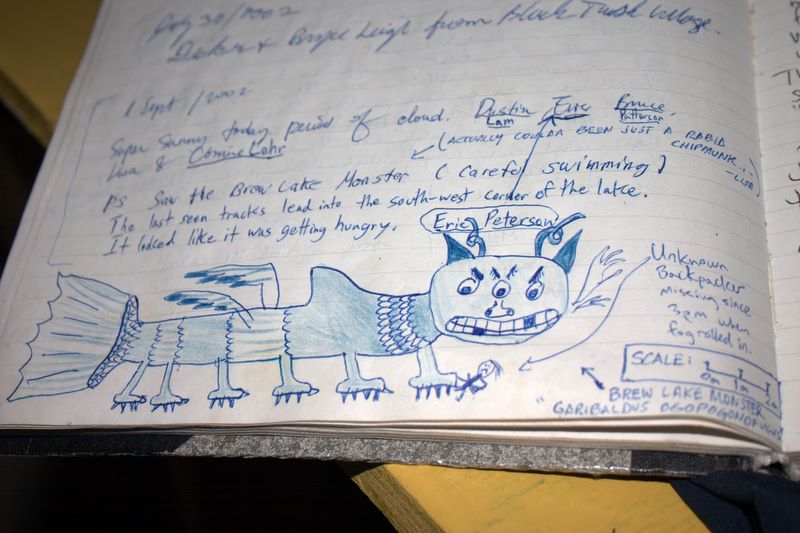 July 30/2002
& Leigh from Black Tusk Village.
1 Sept / 2002
Super Sunny today, period of cloud. Dustin Lam Eric Bruce Patterson,
Lisa &
(ACTUALLY COULDA BEEN JUST A RABID
CHIPMUNK...
-LISA)
PS Saw the Brew Lake Monster (Careful swimming)
The last seen tracks lead into the south-west corner of the lake.
It looked like it was getting hungry.
Eric Peterson
Unknown
Backpacker
missing since
3pm when
fog rolled in.
SCALE:
0m 1m 2m
BREW LAKE MONSTER
"GARIBALDUS OGOPOGONOFUGUS"